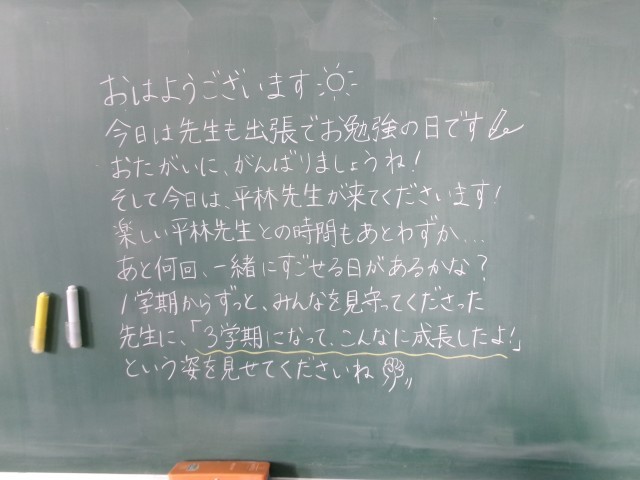 おはようございます
今日は先生も出張でお勉強の日です
おたがいに、がんばりましょうね!
そして今日は、平林先生が来てくださいます!
楽しい平林先生との時間もあとわずか...
あと何回、一緒にすごせる日があるかな?
1学期からずっと、みんなを見守ってくださった
先生に、「3学期になって、こんなに成長したよ!」
という姿を見せてくださいね